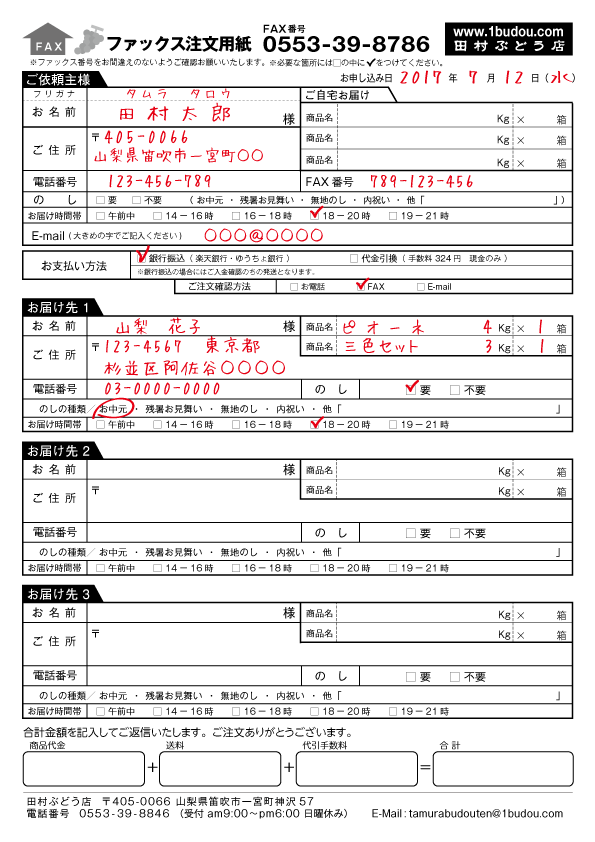 FAX ファックス注文用紙 FAX番号 0553-39-8786 www.1budou.com 田村ぶどう店
※ファックス番号をお間違えのないようご確認お願いいたします。※必要な箇所には□の中に✔をつけてください。
ご依頼主様 お申し込み日 2017 年 7 月 12 日 (水)
フリガナ タムラ タロウ ご自宅お届け
お名前 田村太郎 様 商品名 Kg × 箱
ご住所 〒405-0066 商品名 Kg × 箱
山梨県笛吹市一宮町〇〇 商品名 Kg × 箱
電話番号 123-456-789 FAX番号 789-123-456
のし □要 □不要 (お中元 ・ 残暑お見舞い ・ 無地のし ・ 内祝い ・ 他「 」)
お届け時間帯 □午前中 □14-16時 □16-18時 ☑18-20時 □19-21時
E-mail (大きめの字でご記入ください) 〇〇〇@〇〇〇〇
お支払い方法 ☑銀行振込(楽天銀行・ゆうちょ銀行) □代金引換(手数料324円 現金のみ)
※銀行振込の場合にはご入金確認のちの発送となります。
ご注文確認方法 □お電話 ☑FAX □E-mail
お届け先1
お名前 山梨 花子 様 商品名 ピオーネ 4 Kg × 1 箱
ご住所 〒123-4567 東京都 商品名 三色セット 3 Kg × 1 箱
杉並区阿佐谷〇〇〇〇
電話番号 03-0000-0000 のし ☑要 □不要
のしの種類/お中元 ・ 残暑お見舞い ・ 無地のし ・ 内祝い ・ 他「 」
お届け時間帯 □午前中 □14-16時 □16-18時 ☑18-20時 □19-21時
お届け先2
お名前 様 商品名 Kg × 箱
ご住所 〒 商品名 Kg × 箱
電話番号 のし □要 □不要
のしの種類/お中元 ・ 残暑お見舞い ・ 無地のし ・ 内祝い ・ 他「 」
お届け時間帯 □午前中 □14-16時 □16-18時 □18-20時 □19-21時
お届け先3
お名前 様 商品名 Kg × 箱
ご住所 〒 商品名 Kg × 箱
電話番号 のし □要 □不要
のしの種類/お中元 ・ 残暑お見舞い ・ 無地のし ・ 内祝い ・ 他「 」
お届け時間帯 □午前中 □14-16時 □16-18時 □18-20時 □19-21時
合計金額を記入してご返信いたします。ご注文ありがとうございます。
商品代金 送料 代引手数料 合計
+ + =
田村ぶどう店 〒405-0066 山梨県笛吹市一宮町神沢57
電話番号 0553-39-8846 (受付am9:00〜pm6:00 日曜休み) E-Mail:tamurabudouten@1budou.com